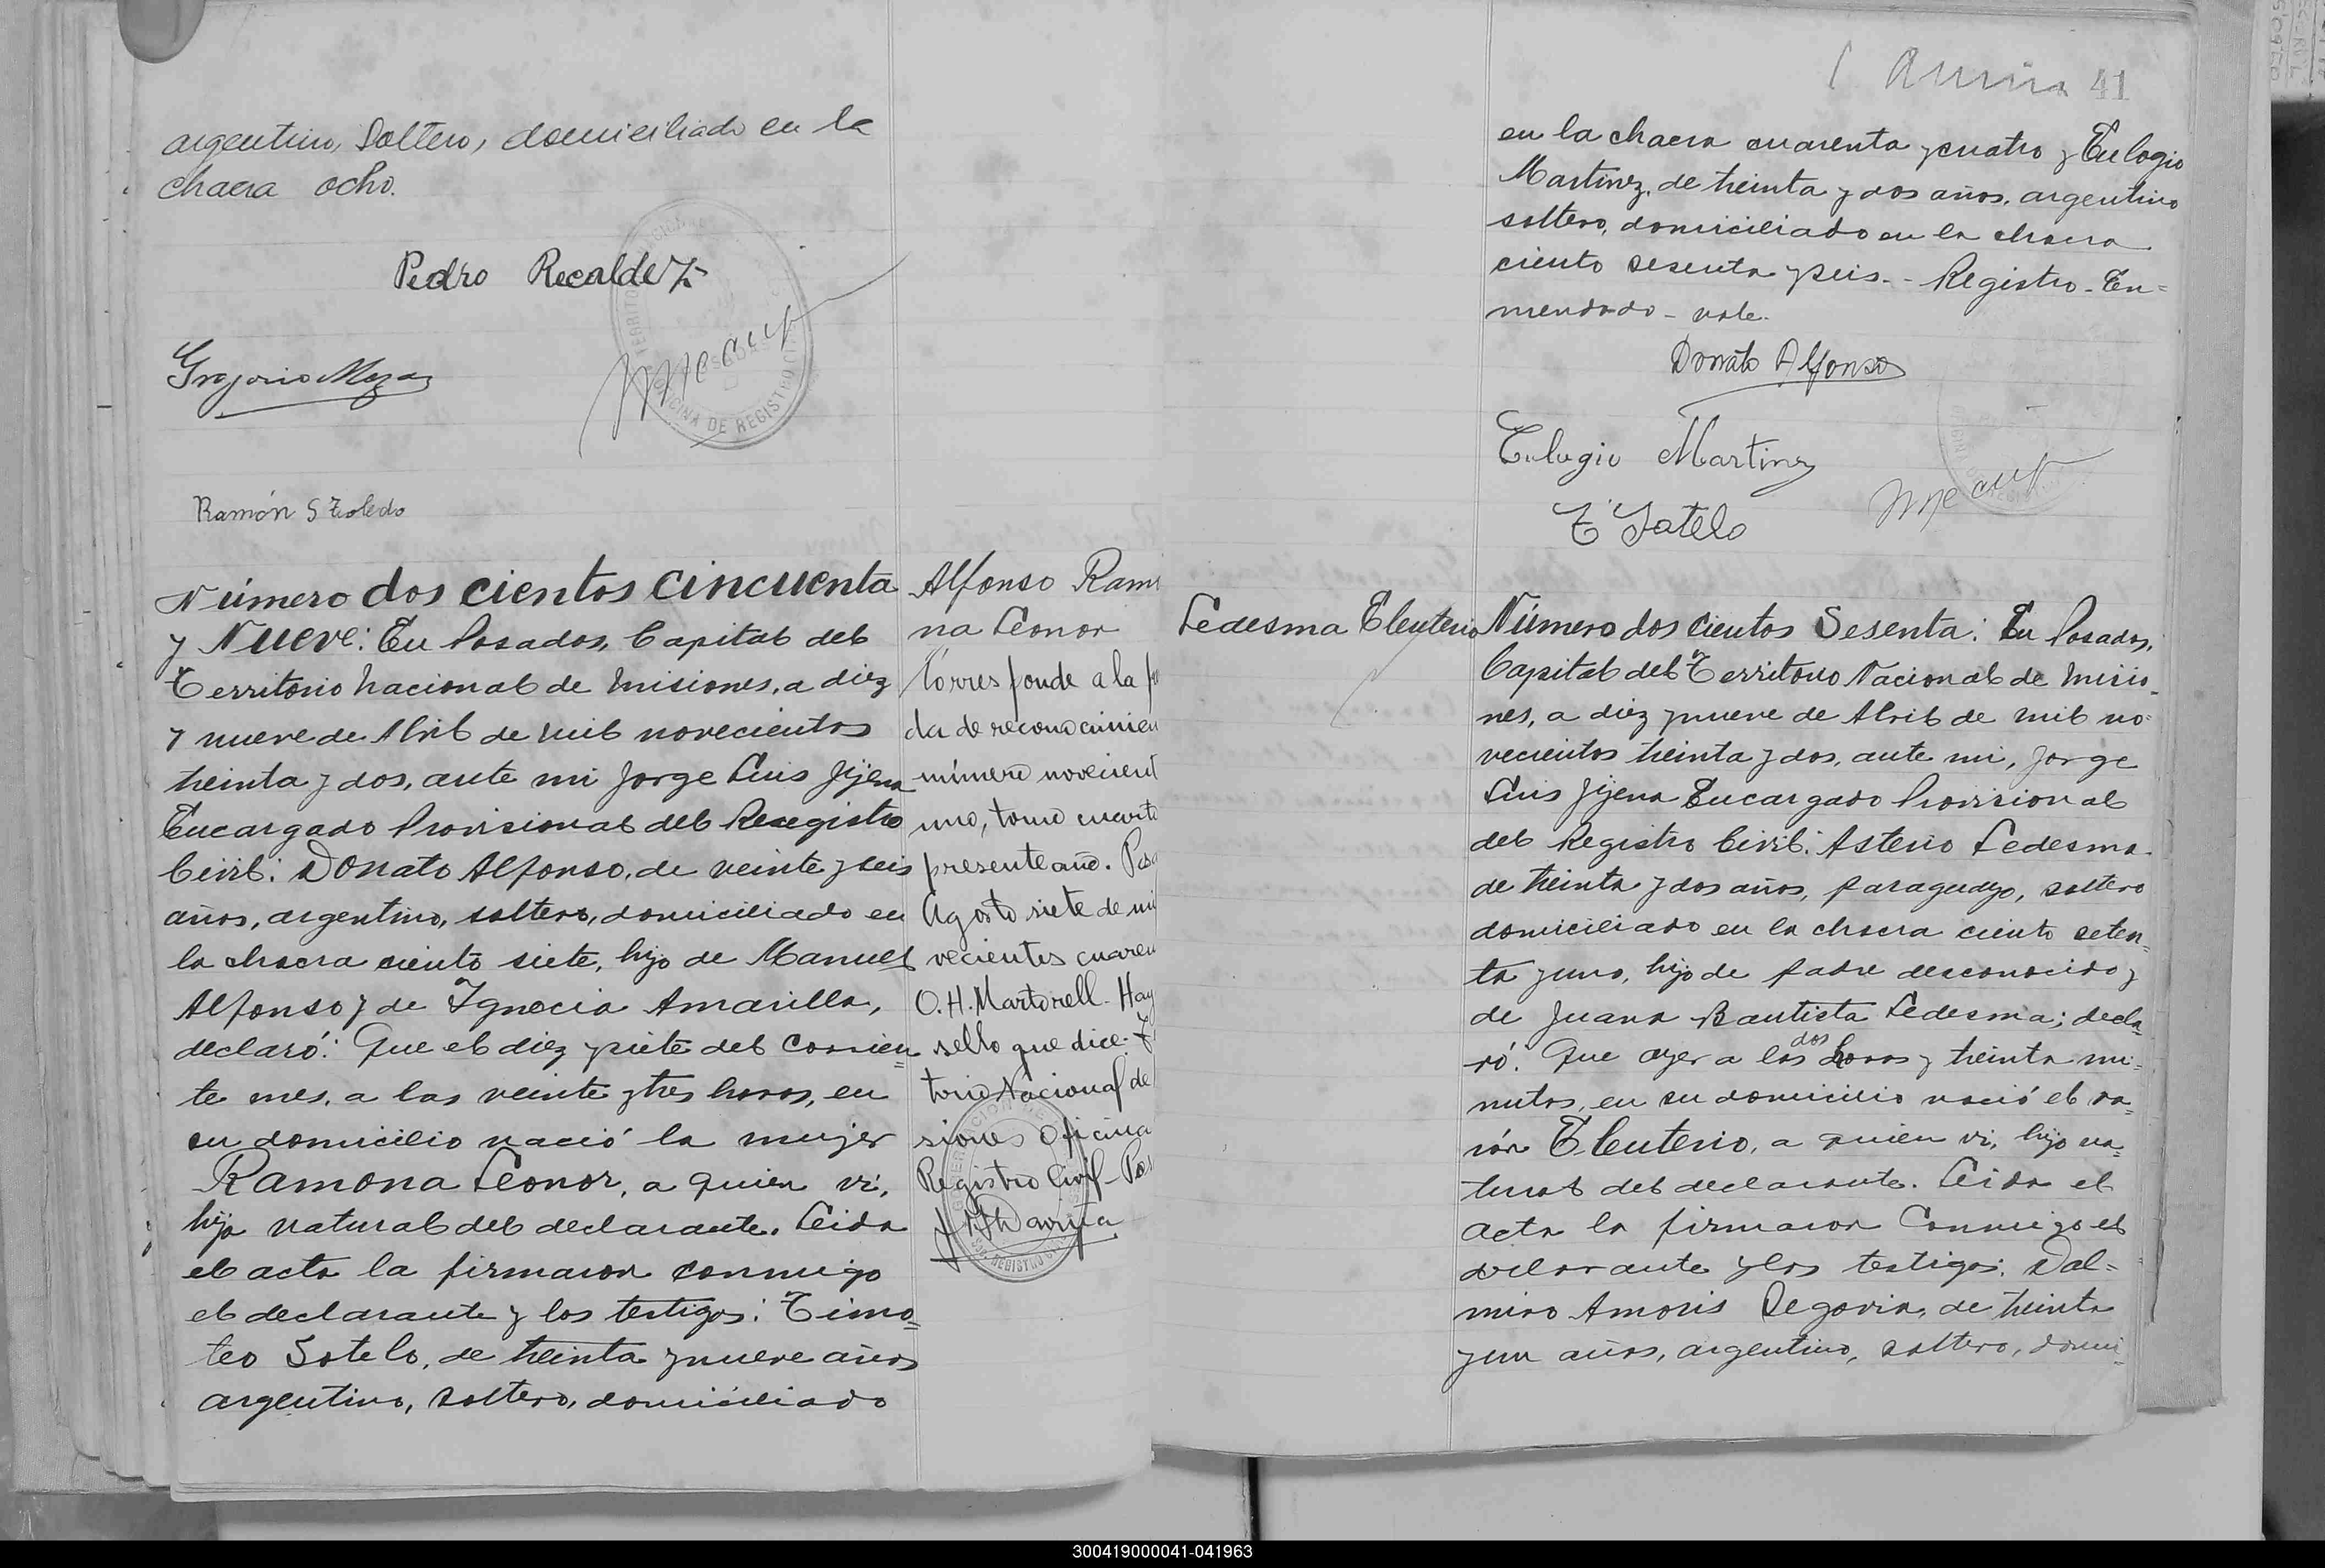 argentino, Soltero, domiciliado en la
chacra ocho.
Pedro Recalde
Gregorio Meza
OFICINA DE REGISTRO CIVIL
Ramón S Toledo
Número dos cientos cincuenta
y Nueve: En Posadas, Capital del
Territorio Nacional de Misiones, a diez
y nueve de Abril de mil novecientos
treinta y dos, ante mi Jorge Luis Jijena
Encargado Provisional del Reregistro
Civil: Donato Alfonso, de veinte y seis
años, argentino, soltero, domiciliado en
la chacra ciento siete, hijo de Manuel
Alfonso y de Ignacia Amarilla,
declaró: Que el diez y siete del corrien=
te mes, a las veinte y tres horas, en
su domicilio nació la mujer
Ramona Leonor, a quien vi,
hija natural del declarante. Leida
el acta la firmaron conmigo
el declarante y los testigos: Timo=
teo Sotelo, de treinta y nueve años
argentino, soltero, domiciliado
Alfonso Ramo
na Leonor
Corresponde a la
da de reconocimien
número novecient
uno, tomo cuarto
presente año. Posa
Agosto siete de mi
vecientos cuaren
O. H. Martorell. Hay
sello que dice: T
torio Nacional de
siones Oficina
Registro Civil - Pos
41
en la chacra cuarenta y cuatro y Eulogio
Martinez, de treinta y dos años, argentino
soltero, domiciliado en la chacra
ciento sesenta y seis. - Registro - En=
mendado - vale.
Donato Alfonso
Eulogio Martinez
T Sotelo
Ledesma Eleuterio
Número dos cientos Sesenta: En Posadas,
Capital del Territorio Nacional de Misio=
nes, a diez y nueve de Abril de mil no=
vecientos treinta y dos, ante mi, Jorge
Luis Jijena Encargado Provisional
del Registro Civil: Asterio Ledesma
de treinta y dos años, paraguayo, soltero
domiciliado en la chacra ciento seten=
ta y uno, hijo de padre desconocido y
de Juana Bautista Ledesma; decla=
ró: Que ayer a las dos horas y treinta mi=
nutos, en su domicilio nació el va=
rón Eleuterio, a quien vi, hijo na=
tural del declarante. Leida el
acta la firmaron Conmigo el
declarante y los testigos: Dal=
miro Amoris Segovia, de treinta
y un años, argentino, soltero, domi=
300419000041-041963